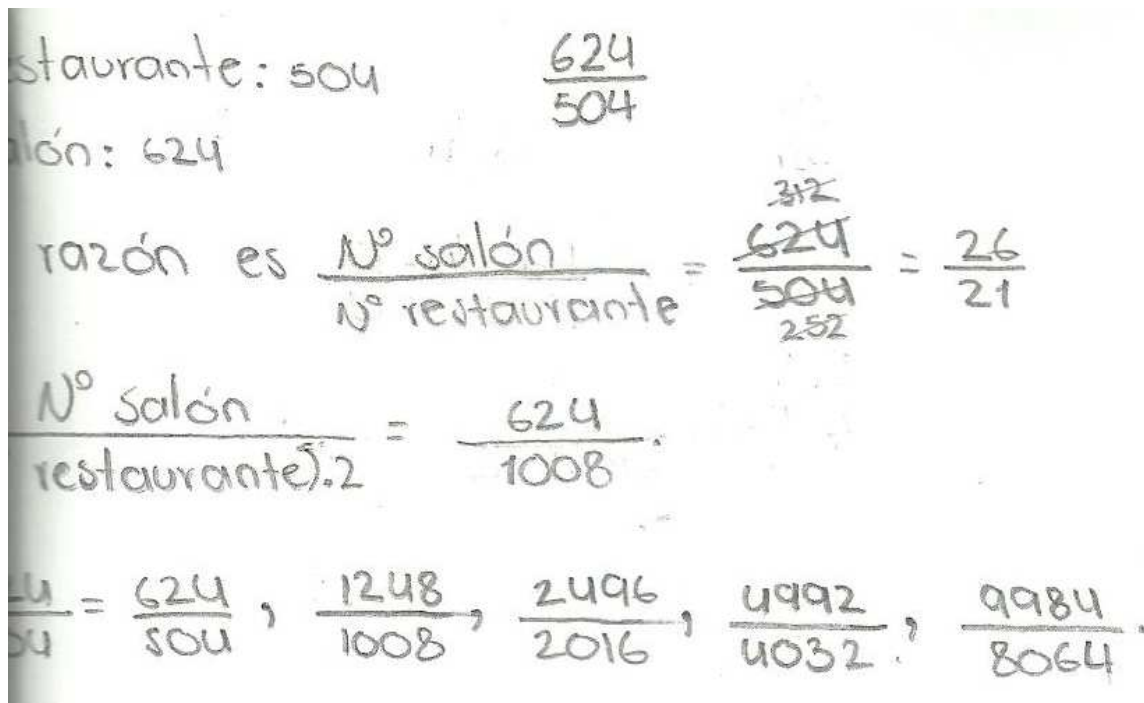 staurante: 504 624/504
lón: 624
razón es Nº salón / Nº restaurante = 312 624/504 252 = 26/21
Nº salón / restaurante).2 = 624/1008.
24/04 = 624/504, 1248/1008, 2496/2016, 4992/4032, 9984/8064.